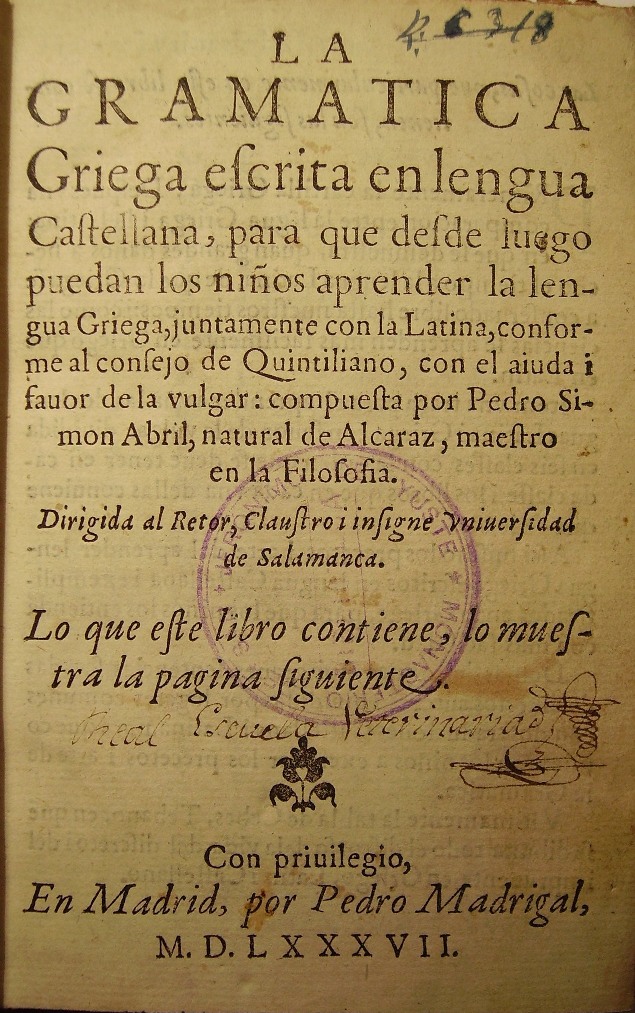 R. 6318
LA
GRAMATICA
Griega eſcrita en lengua
Caſtellana, para que deſde luego
puedan los niños aprender la len-
gua Griega, juntamente con la Latina, confor-
me al conſejo de Quintiliano, con el aiuda i
fauor de la vulgar: compueſta por Pedro Si-
mon Abril, natural de Alcaraz, maeſtro
en la Filoſofia.
Dirigida al Retor, Clauſtro i inſigne Vniuerſidad
de Salamanca.
Lo que eſte libro contiene, lo mueſ-
tra la pagina ſiguiente.
Real Escuela Veterinaria
Con priuilegio,
En Madrid, por Pedro Madrigal,
M. D. L X X X V I I.